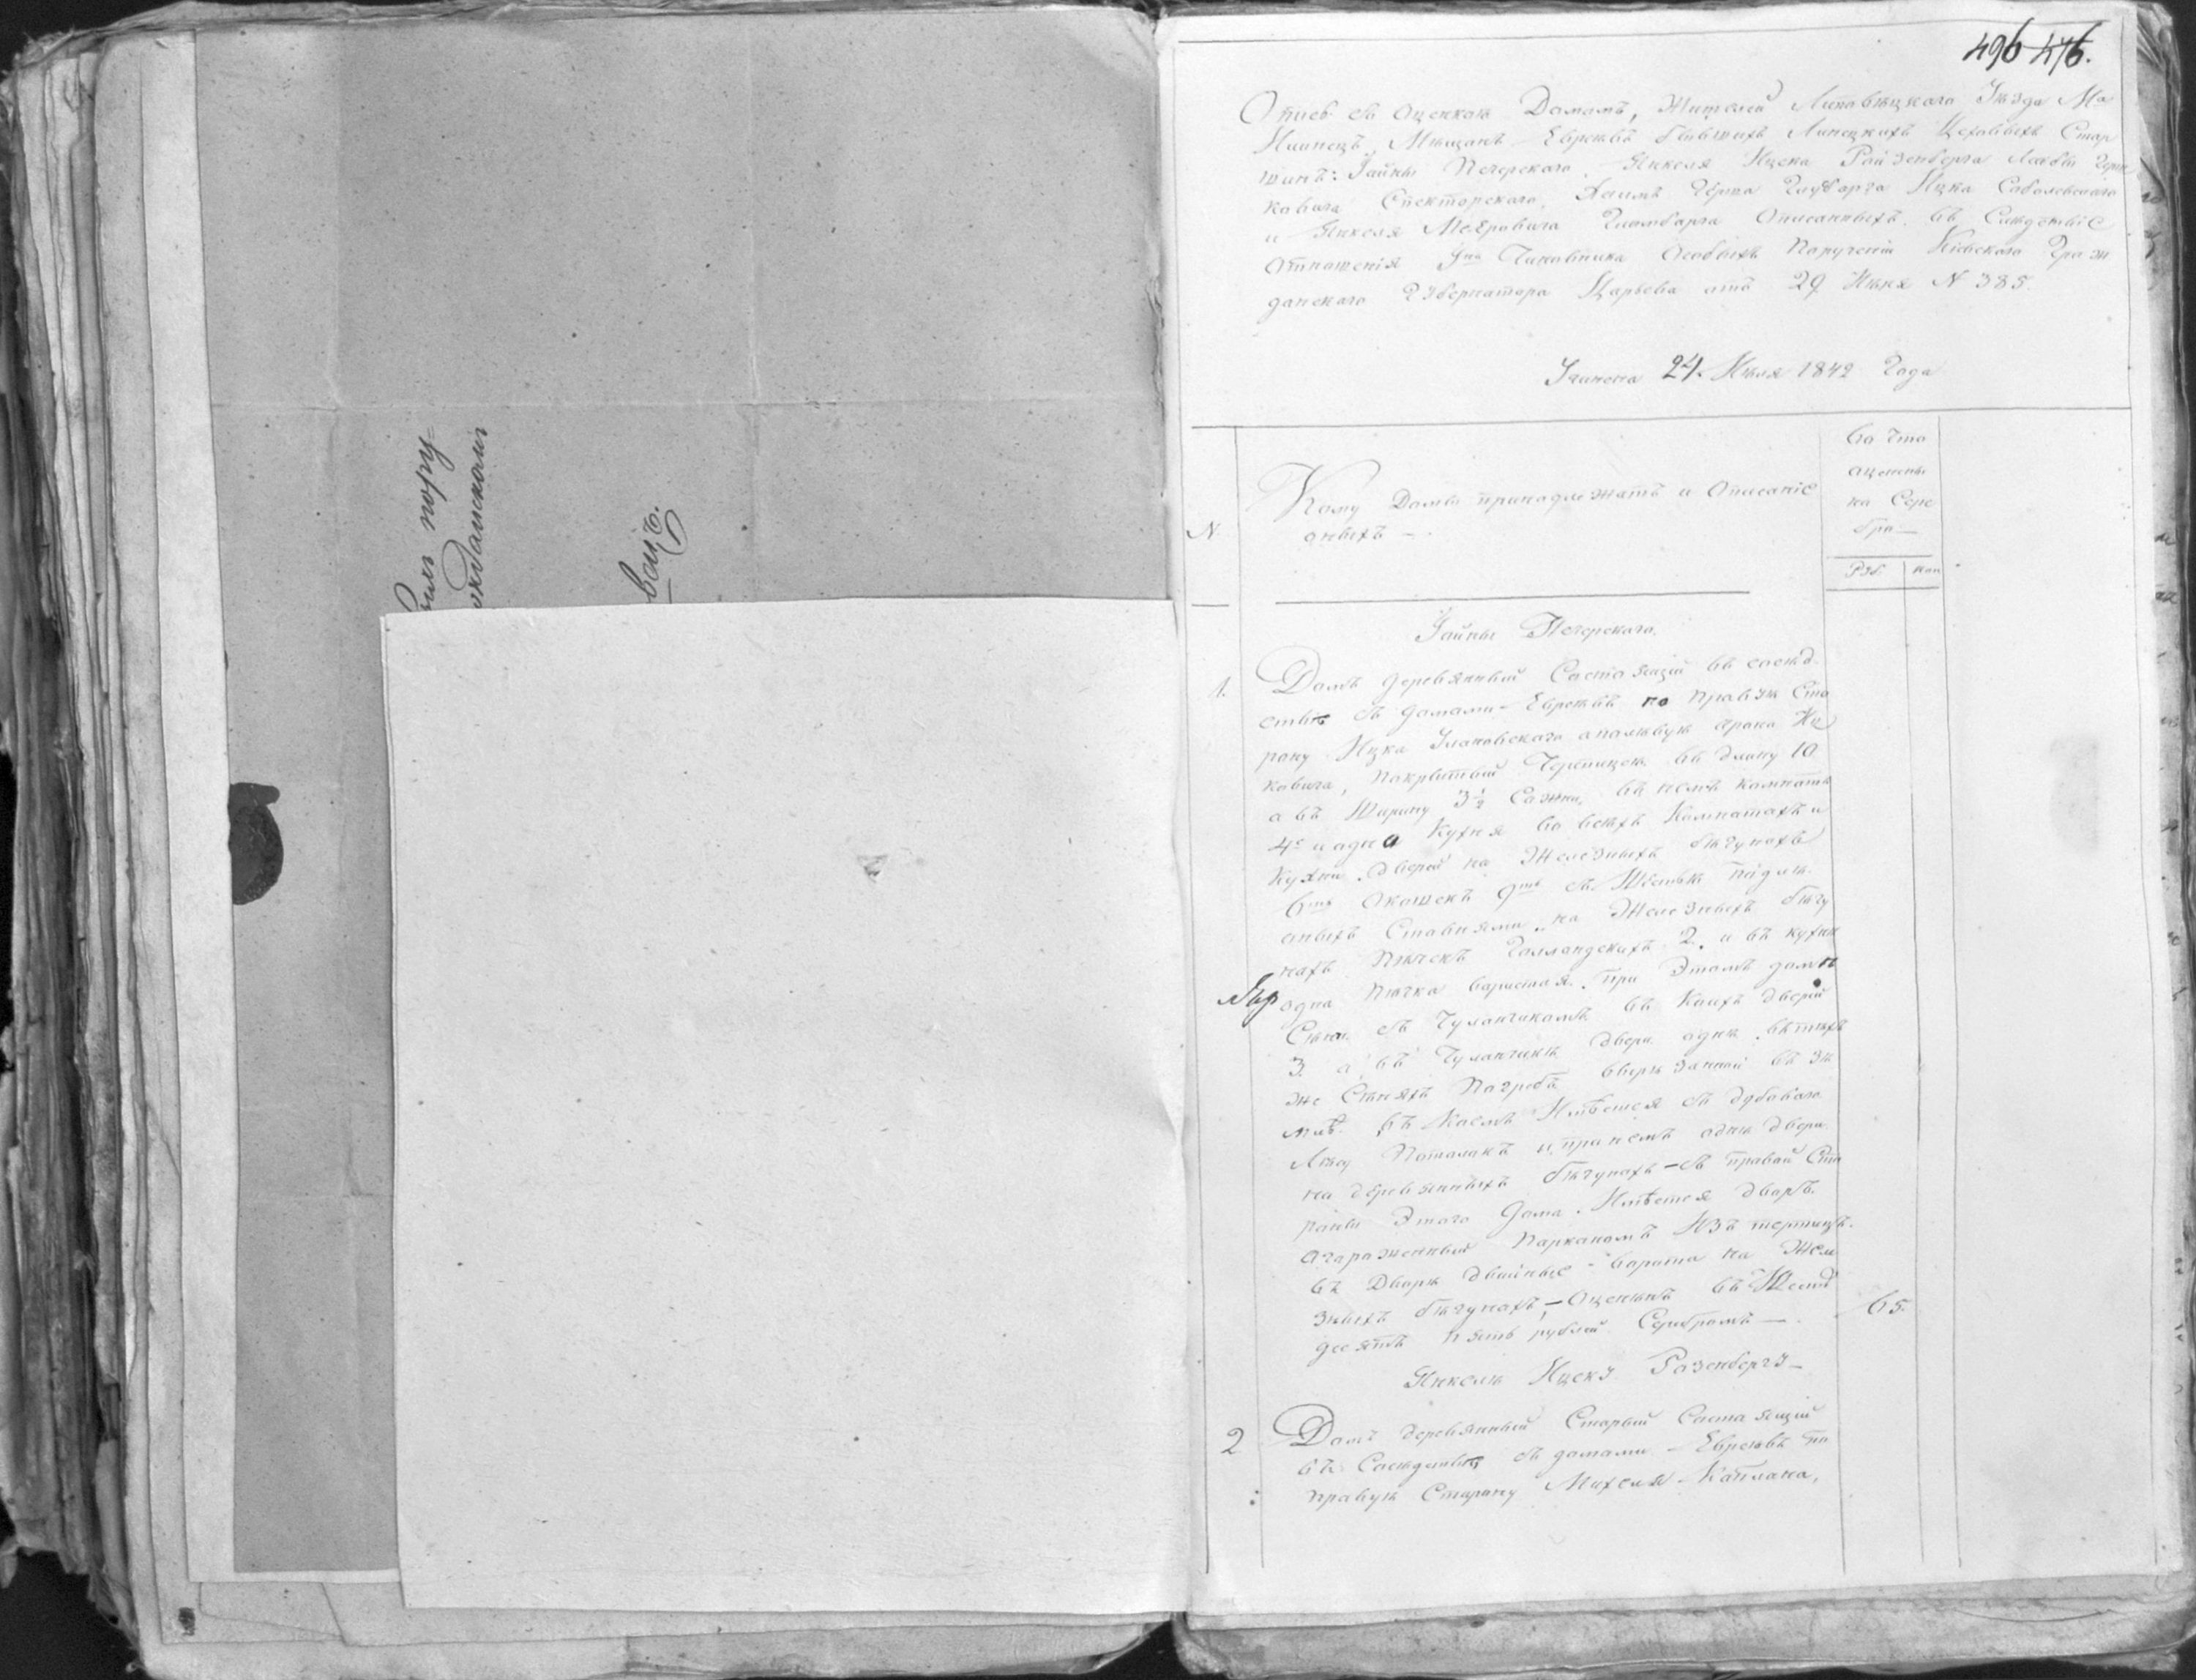 вич пору-
жданском
496 476.
Опись съ оценкою Домамъ, Жителей Липовецкаго Уезда Мка
Илинецъ, Мещанъ Евреевъ бывшихъ Линецкихъ Цеховыхъ Стар
шинъ: Гайны Печерскаго, Янкеля Ицека Райзенберга Лейбы Герш
ковича Спекторскаго, Хаимъ Герша Ицка Соболевскаго
и Янкеля Меера Описанныхъ въ Следствіе
Отношенія Гна Чиновника Особыхъ Порученій Кіевскаго Граж
данскаго Губернатора Царьева отъ 29 Июня N 385.
Учинена 24. Июля 1842 Года
N.
Кому Домы принадлежатъ и Описаніе
оныхъ —.
Во что
оценены
на Сере
бро —
Руб. Коп
Гайны Печерскаго.
1. Домъ деревянный Состоящій въ соседъ
ствѣ съ домами Евреевъ по правую Сто
рону Ицка Улановскаго а полевую Арона Иц
ковича, покрытый Черепицею въ длину 10
а въ Ширину 3½ Сажни, въ немъ Комнатъ
4е и одна Кухня во всехъ Комнатахъ и
Кухни дверей на Железныхъ бегунахъ
6ть Окошекъ 9ть съ Шестью
Ставнями на Железныхъ бегу
нахъ Печекъ Голландскихъ 2. и въ кухни
одна Печка варистая. При Этомъ домѣ
Сени съ Чуланчикомъ въ Коихъ дверей
3. а въ Чуланчикѣ двери одни въ техъ
же Сеняхъ Погребъ въ зе
млѣ въ Коемъ Имѣется съ дубоваго
Лесу Потолокъ и при немъ одни двери
на деревянныхъ бегунахъ — съ правой Сто
роны Этого дома Имѣется дворъ.
огороженный Парканомъ Изъ тертицъ.
въ Дворѣ двойные ворота на Желе
зныхъ бегунахъ, — Оцененъ въ Шесть
десятъ пять рублей Серебромъ —. 65.
Янкелю Ицеку Розенбергу —
2 Домъ деревянный Старый Состоящій
въ Соседствѣ съ домами Евреевъ по
правую Старону Михеля Каплана,